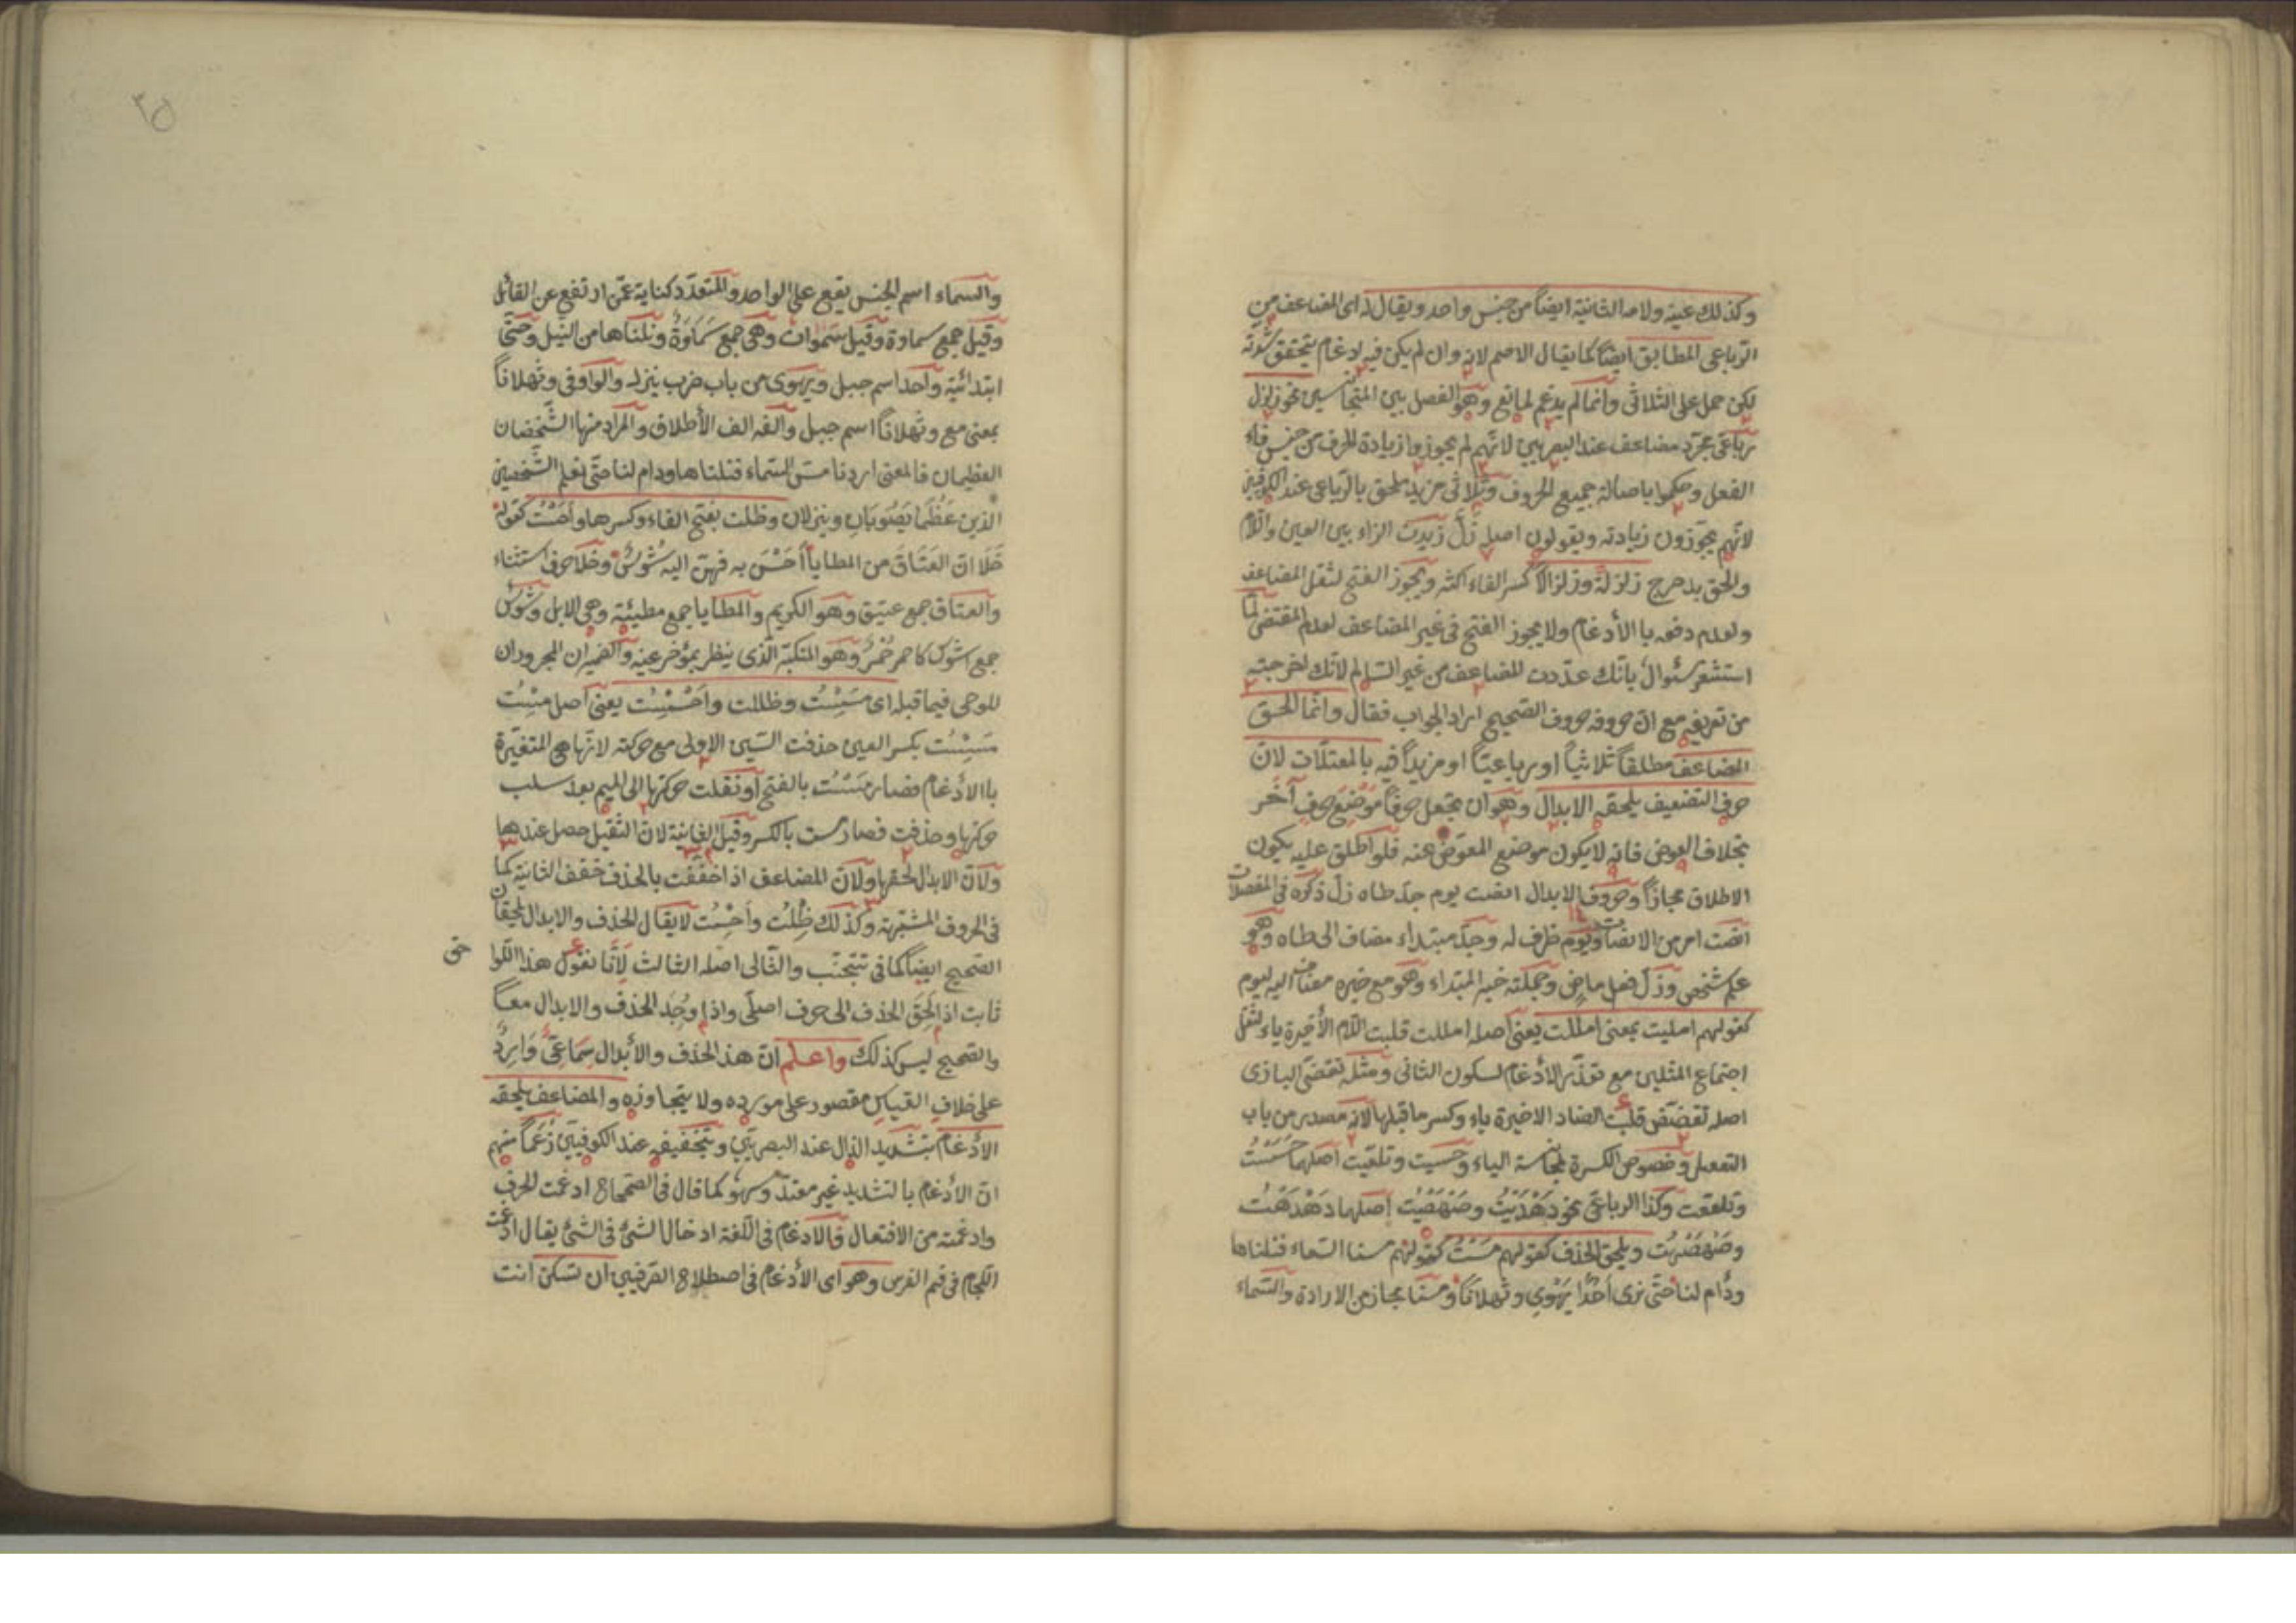 وكذلك عينه ولامه الثانية ايضاً من جنس واحد ويقال له اى المضاعف من
الرّباعى المطابق ايضاً كما يقال الاصم لانه وان لم يكن فيه ادغام يتحقق شدّته
لكن حمل على الثلاثى وانما لم يدغم لمانع وهو الفصل بين المتجانسين نحو زلزل
رباعى مجرّد مضاعف عند البصريين لانّهم لم يجوزوا زيادة الحرف من جنس فاء
الفعل وحكموا باصالة جميع الحروف وثلاثى مزيد ملحق بالرّباعى عند الكوفيين
لانّهم يجوّزون زيادته ويقولون اصله زلّ زيدت الزاء بين العين واللام
والحق بدحرج زلزلةً وزلزالاً كسر الفاء اكثر ويجوز الفتح لثقل المضاعف
ولعدم دفعه باالأدغام ولا يجوز الفتح فى غير المضاعف لعدم المقتضى لمّا
استشعر سئوال بانّك عدّدت المضاعف من غير السّالم لانّك اخرجته
من تعريفه مع انّ حروفه حروف الصّحيح اراد الجواب فقال وانّما الحق
المضاعف مطلقاً ثلاثياً او رباعيّاً او مزيداً فيه بالمعتلّات لانّ
حرف التضعيف يلحقه الابدال وهو ان تجعل حرفاً موضع حرف آخر
بخلاف العوض فانه لا يكون موضع المعوّض عنه فلو اطلق عليه يكون
الاطلاق مجازاً وحروف الابدال انصت يوم جدّ طاه زلّ ذكره فى المفصلات
انصت امر من الانصات ويوم ظرف له وجدّ مبتداء مضاف الى طاه وهو
علم شخص وزلّ فعل ماض وجملته خبر المبتداء وهو مع خبره مضاف اليه ليوم
كقولهم امليت بمعنى امللت يعنى اصله امللت قلبت اللام الأخيرة ياء لثقل
اجتماع المثلين مع تعذّر الأدغام لسكون الثانى ومثله تقضّى البازى
اصله تقضّض قلبت الضاد الاخيرة ياء وكسر ما قبلها لانه مصدر من باب
التفعل وخصوص الكسرة لمجانسة الياء وحسيت وتلعّيت اصلهما حسست
وتلععت وكذا الرباعى نحو دَهْدَيْتُ وصَهْصَيْتُ اصلهما دَهْدَهْتُ
وصَهْصَهْتُ ويلحق الحذف كقولهم مَسْتُ كقولهم مسنا السّماء فنلناها
ودام لنا حتّى نرى اُحُداً يَهْوِي وثهلاناً ومسنا مجاز من الارادة والسّماء
والسماء اسم الجنس يقع على الواحد والمتعدّد كناية عمّن ارتفع عن القائل
وقيل جمع سماوة وقيل سموات وهى جمع سَمَاوَةٌ ونلناها من النيل وحتّى
ابتدائية واحد اسم جبل ويهوى من باب ضرب ينزل والواو فى وثهلاناً
بمعنى مع وثهلاناً اسم جبل والفه الف الأطلاق والمراد منها الشّخصان
العظيمان فالمعنى اردنا مسّ السّماء فنلناها ودام لنا حتّى نعلم الشّخصين
الّذين عَظُمَا يَصُوبَانِ وينزلان وظلت بفتح الفاء وكسرها واَحَسْتُ كقوله
خَلَا انّ العَتَاقَ من المطايا اَحَسْنَ به فهنّ اليه شُوسٌ وخلا حرف استثناء
والعتاق جمع عتيق وهو الكريم والمطايا جمع مطيئة وهى الابل وشُوسٌ
جمع اشوس كاحمر حُمْرٌ وهو المتكبّر الّذى ينظر بمؤخر عينه والضميران المجروران
للوحى فيما قبله اى مَسِسْتُ وظللت واَحْسَسْتُ يعنى اصل مِسْتُ
مَسِسْتُ بكسر العين حذفت السّين الاولى مع حركته لانّها هى المتغيّرة
باالأدغام فصار مَسْتُ بالفتح او نقلت حركتها الى الميم بعد سلب
حركتها وحذفت فصار مست بالكسر وقيل الثانية لانّ الثقيل حصل عندها
ولانّ الابدال لحقها ولانّ المضاعف اذا خفّفت بالحذف خفف الثانية كما
فى الحروف المشبّهة وكذلك ظِلْتُ واَحَسْتُ لا يقال الحذف والابدال يلحقان
الصّحيح ايضاً كما فى تتجنّب والثّالى اصله الثالث لانّا نقول هذا اللّوا
حق
ثابت اذ لَحِقَ الحذف الى حرف اصلّى واذا وُجِدَ الحذف والابدال معاً
والصّحيح ليس كذلك واعلم انّ هذا الحذف والأبدال سِمَاعِىٌّ وَارِدٌ
على خلاف القياس مقصور على مورده ولا يتجاوزه والمضاعف يلحقه
الأدغام بتشديد الدّال عند البصريّين وبتخفيفه عند الكوفيين زَعَماً منهم
انّ الأدغام بالتشديد غير متعدّ وسهو كما قال فى الصّحاح ادغمت الحرف
وادغمته من الافتعال فالادغام فى اللّغة ادخال الشئ فى الشئ يقال ادغمت
اللجام فى فم الفرس وهو اى الأدغام فى اصطلاح الصّرفيين ان تسكن انت